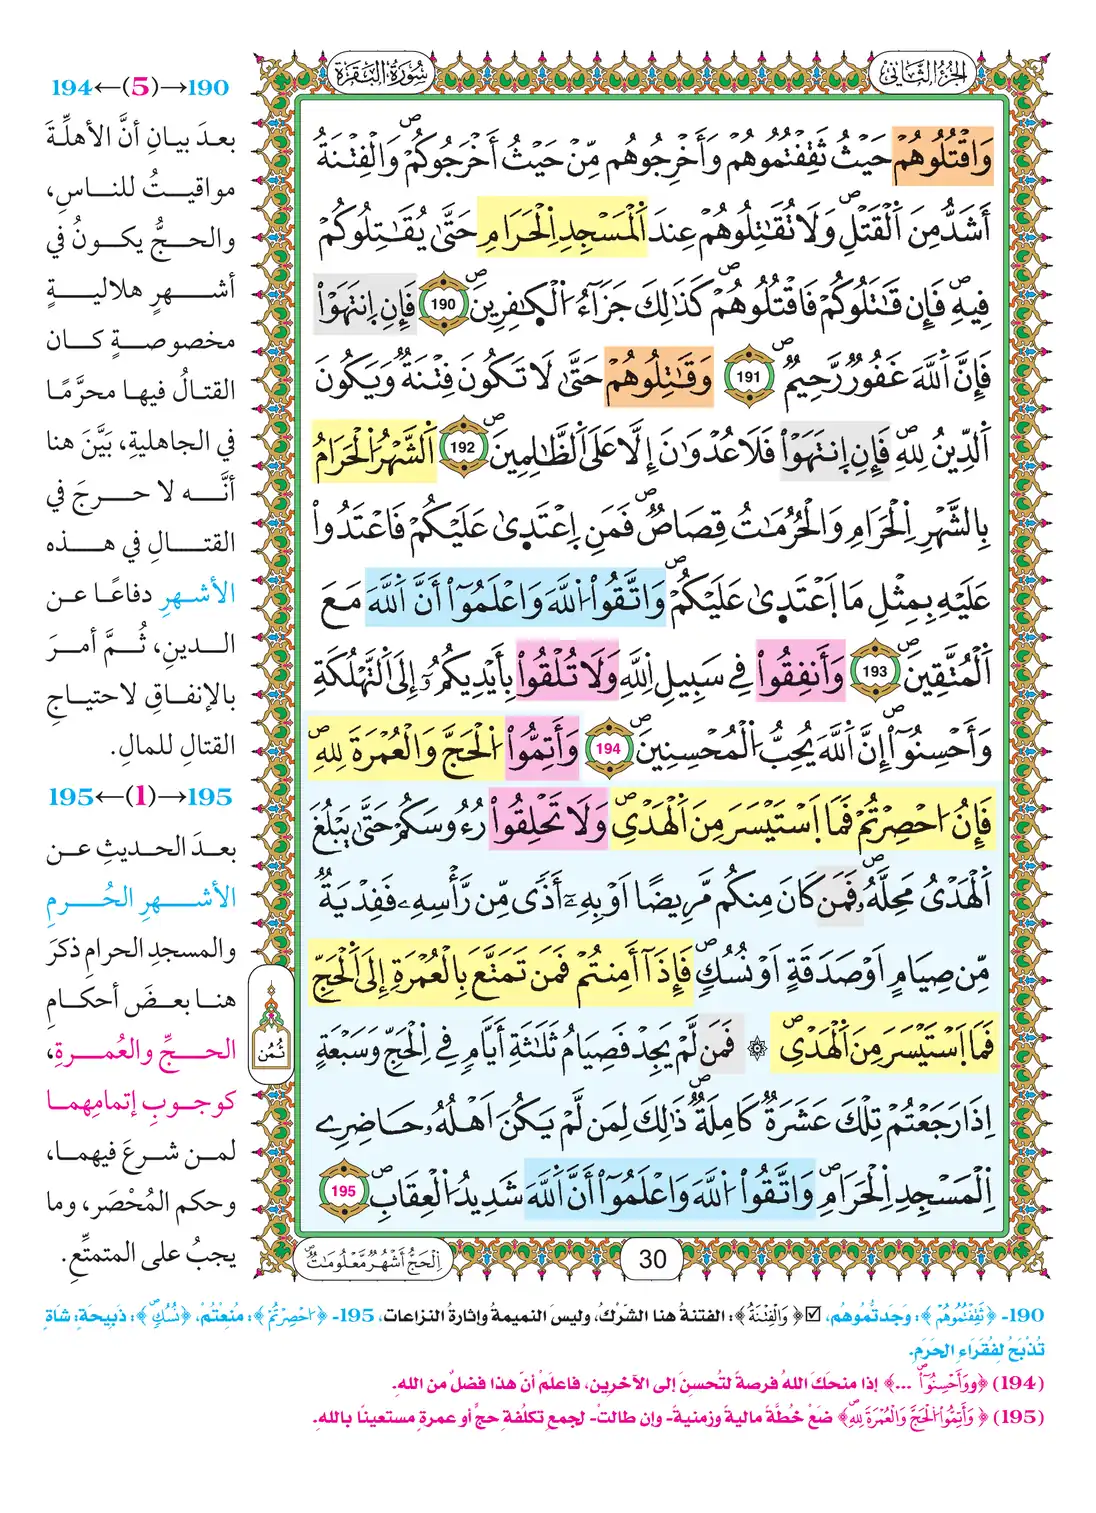 الجزء الثاني
سورة البقرة
وَاقْتُلُوهُمْ حَيْثُ ثَقِفْتُمُوهُمْ وَأَخْرِجُوهُم مِّنْ حَيْثُ أَخْرَجُوكُمْ وَالْفِتْنَةُ
أَشَدُّ مِنَ اَلْقَتْلِ وَلَا تُقَٰتِلُوهُمْ عِندَ اَلْمَسْجِدِ اِلْحَرَامِ حَتَّىٰ يُقَٰتِلُوكُمْ
فِيهِ فَإِن قَٰتَلُوكُمْ فَاقْتُلُوهُمْ كَذَٰلِكَ جَزَآءُ اُلْكَٰفِرِينَ 190 فَإِنِ اِنتَهَوْاْ
فَإِنَّ اَللَّهَ غَفُورٌ رَّحِيمٌ 191 وَقَٰتِلُوهُمْ حَتَّىٰ لَا تَكُونَ فِتْنَةٌ وَيَكُونَ
اَلدِّينُ لِلهِ فَإِنِ اِنتَهَوْاْ فَلَا عُدْوَٰنَ إِلَّا عَلَى اَلظَّٰلِمِينَ 192 اَلشَّهْرُ اُلْحَرَامُ
بِالشَّهْرِ اِلْحَرَامِ وَالْحُرُمَٰتُ قِصَاصٌ فَمَنِ اِعْتَدَىٰ عَلَيْكُمْ فَاعْتَدُواْ
عَلَيْهِ بِمِثْلِ مَا اَعْتَدَىٰ عَلَيْكُمْ وَاتَّقُواْ اُللَّهَ وَاعْلَمُوٓاْ أَنَّ اَللَّهَ مَعَ
اَلْمُتَّقِينَ 193 وَأَنفِقُواْ فِي سَبِيلِ اِللَّهِ وَلَا تُلْقُواْ بِأَيْدِيكُمُۥٓ إِلَى اَلتَّهْلُكَةِ
وَأَحْسِنُوٓاْ إِنَّ اَللَّهَ يُحِبُّ اُلْمُحْسِنِينَ 194 وَأَتِمُّواْ اُلْحَجَّ وَالْعُمْرَةَ لِلهِ
فَإِنُ احْصِرْتُمْ فَمَا اَسْتَيْسَرَ مِنَ اَلْهَدْيِ وَلَا تَحْلِقُواْ رُءُوسَكُمْ حَتَّىٰ يَبْلُغَ
اَلْهَدْيُ مَحِلَّهُۥ فَمَن كَانَ مِنكُم مَّرِيضًا اَوْ بِهِۦٓ أَذًى مِّن رَّأْسِهِۦ فَفِدْيَةٌ
مِّن صِيَامٍ اَوْ صَدَقَةٍ اَوْ نُسُكٍ فَإِذَآ أَمِنتُمْ فَمَن تَمَتَّعَ بِالْعُمْرَةِ إِلَى اَلْحَجِّ
فَمَا اَسْتَيْسَرَ مِنَ اَلْهَدْيِ ۞ فَمَن لَّمْ يَجِدْ فَصِيَامُ ثَلَٰثَةِ أَيَّامٍ فِي اِلْحَجِّ وَسَبْعَةٍ
اِذَا رَجَعْتُمْ تِلْكَ عَشَرَةٌ كَامِلَةٌ ذَٰلِكَ لِمَن لَّمْ يَكُنَ اَهْلُهُۥ حَاضِرِے
اِلْمَسْجِدِ اِلْحَرَامِ وَاتَّقُواْ اُللَّهَ وَاعْلَمُوٓاْ أَنَّ اَللَّهَ شَدِيدُ اُلْعِقَابِ 195
ثُمُن
30
اِلْحَجُّ أَشْهُرٌ مَّعْلُومَٰتٌ
190→(5)←194
بعدَ بيانِ أنَّ الأهلَّةَ
مواقيتُ للناسِ،
والحجُّ يكونُ في
أشهرٍ هلاليةٍ
مخصوصةٍ كان
القتالُ فيها محرَّمًا
في الجاهليةِ، بَيَّنَ هنا
أنَّه لا حرجَ في
القتالِ في هذه
الأشهرِ دفاعًا عن
الدينِ، ثُمَّ أمرَ
بالإنفاقِ لاحتياجِ
القتالِ للمالِ.
195→(1)←195
بعدَ الحديثِ عن
الأشهرِ الحُرمِ
والمسجدِ الحرامِ ذكرَ
هنا بعضَ أحكامِ
الحجِّ والعُمرةِ،
كوجوبِ إتمامِهما
لمن شرعَ فيهما،
وحكم المُحْصَر، وما
يجبُ على المتمتِّعِ.
190- ﴿ثَقِفْتُمُوهُمْ﴾: وَجَدتُّمُوهُم، ☑﴿وَالْفِتْنَةُ﴾: الفتنةُ هنا الشّركُ، وليسَ النميمةُ وإثارةُ النزاعات، 195- ﴿احْصِرْتُمْ﴾: مُنِعْتُمْ، ﴿نُسُكٍ﴾: ذَبِيحَةٍ: شَاةٍ
تُذْبَحُ لفُقَرَاءِ الحَرَمِ.
(194) ﴿ووَأَحْسِنُوٓاْ ...﴾ إذا منحَكَ اللهُ فرصةً لتُحسِنَ إلى الآخرين، فاعلَمْ أنَّ هذا فضلٌ من اللهِ.
(195) ﴿وَأَتِمُّواْ اُلْحَجَّ وَالْعُمْرَةَ لِلهِ﴾ ضَعْ خُطَّةً ماليةً وزمنيةً- وإن طالتْ- لجمعِ تكلُفةِ حجٍّ أو عمرةٍ مستعينًا بالله.